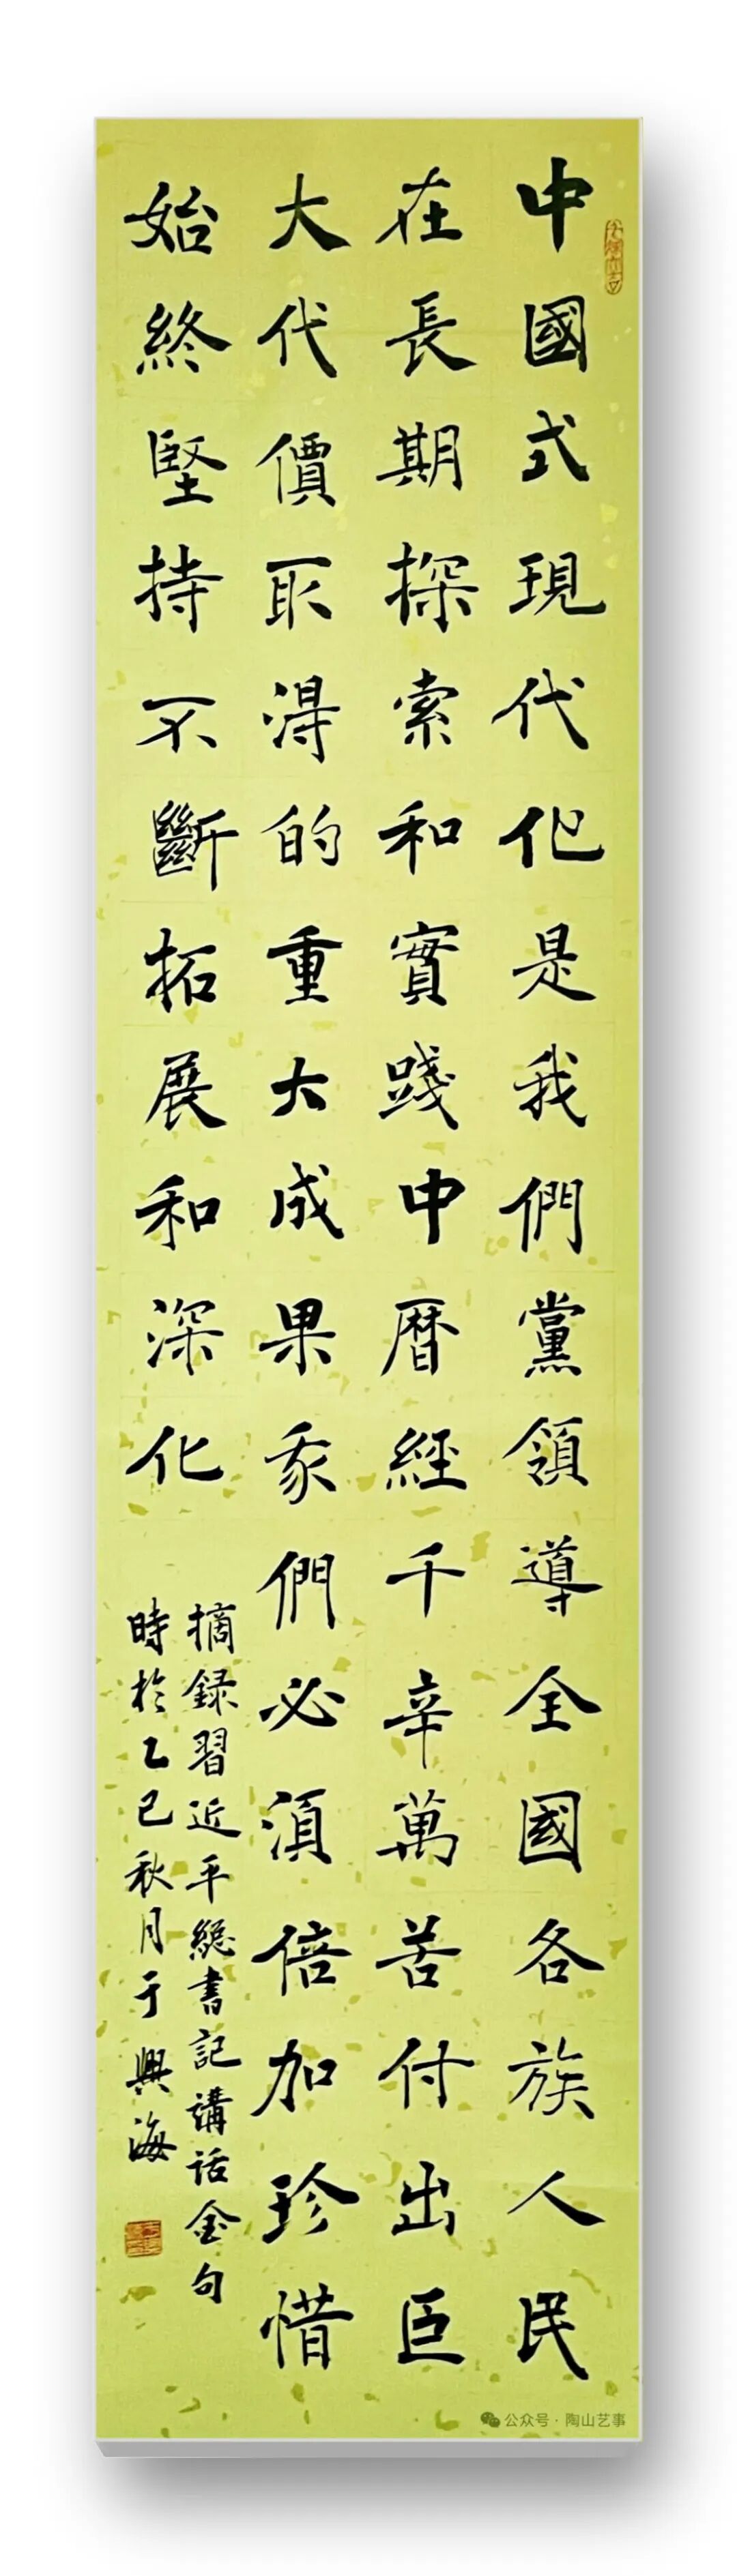 中國式現代化是我們黨領導全國各族人民
在長期探索和實踐中曆經千辛萬苦付出臣
大代價取得的重大成果我們必須倍加珍惜
始終堅持不斷拓展和深化
摘録習近平總書記講話金句
時於乙巳秋月于興海
公众号·陶山艺事